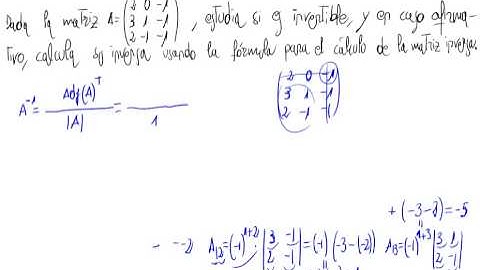 Dada la matriz A = ( 2 0 -1 / 3 1 -1 / 2 -1 -1 ), estudia si es invertible, y en caso afirma-
tivo, calcula su inversa usando la fórmula para el cálculo de la matriz inversa.
A^-1 = Adj(A)^T / |A| = / 1
( 2 0 -1
3 1 -1
2 -1 -1 )
+ (-3-2) = -5
- -2) A12 = (-1)^1+2 | 3 -1 / 2 -1 | = (-1) (-3-(-2)) A13 = (-1)^1+3 | 3 1 / 2 -1 |